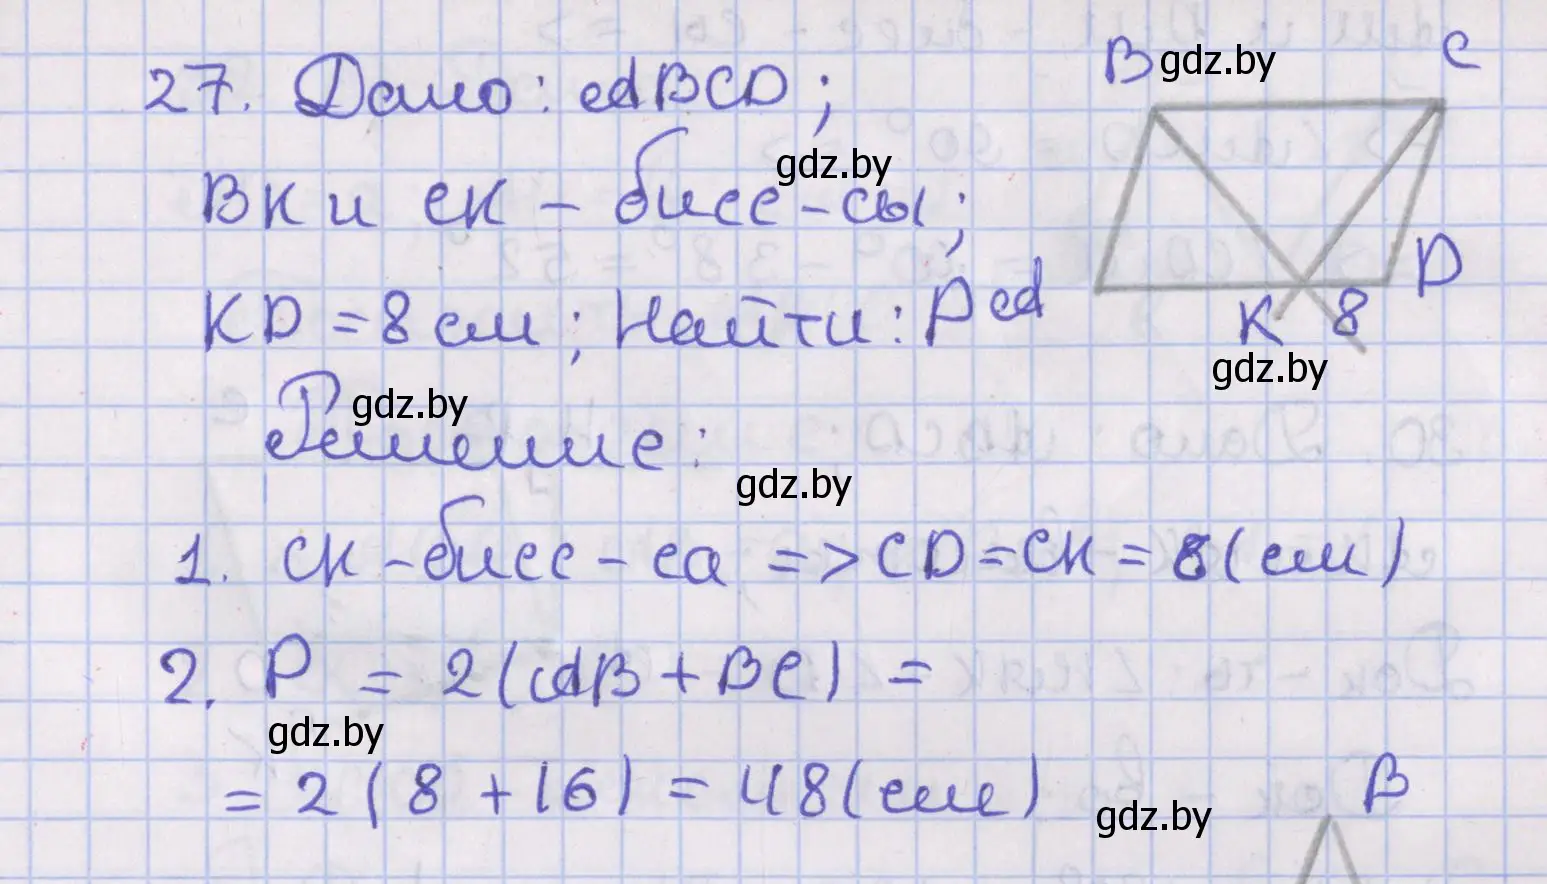 B gdz.by C
27. Дано: ABCD;
gdz.by
BK и CK - бисс-сы;
D
KD = 8 см; Найти: P A
K 8
gdz.by
gdz.by
Решение:
gdz.by
1. CK - бисс-са => CD = CK = 8 (см)
2. P = 2(AB + BC) =
gdz.by
= 2(8 + 16) = 48 (см)
B
gdz.by